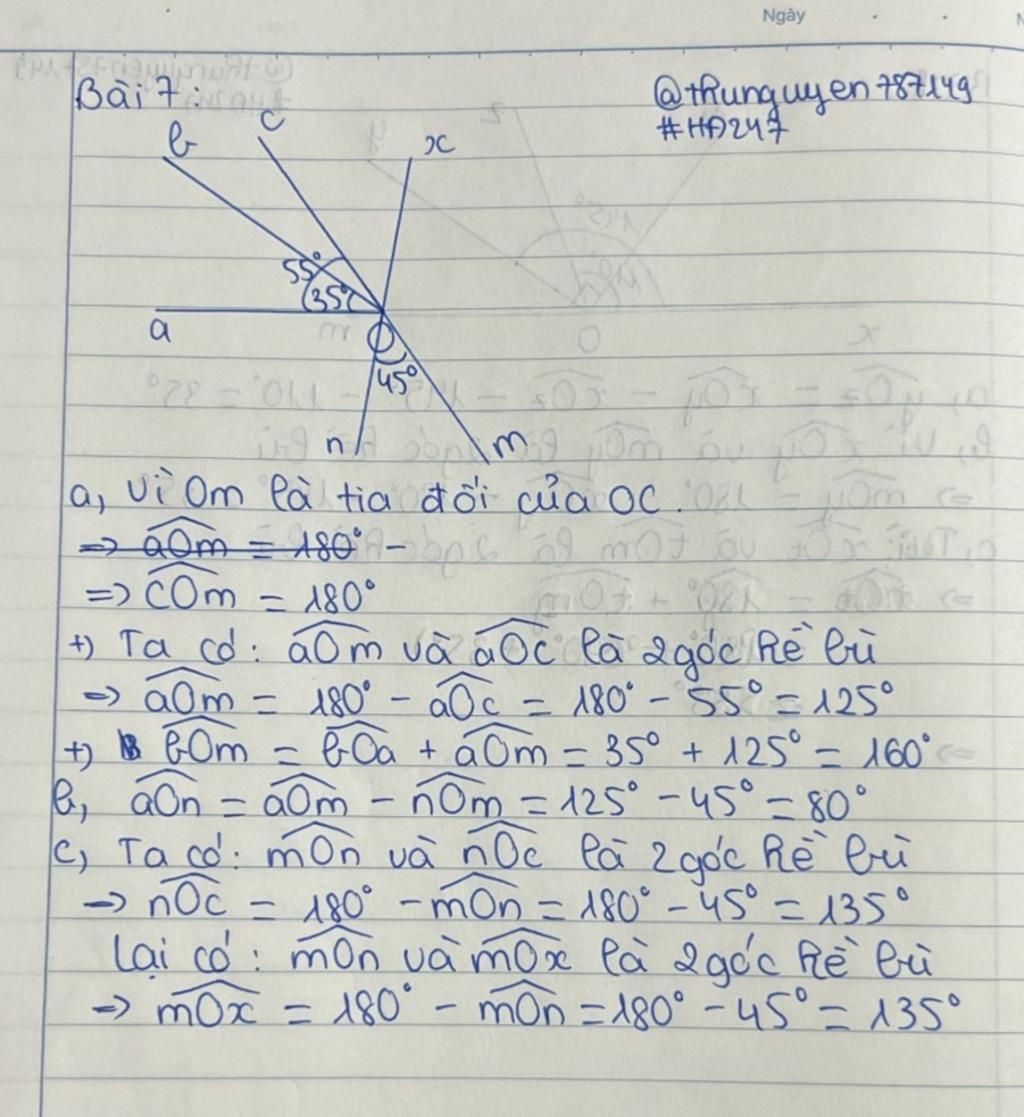 Ngày
Bài 7:
@thunguyen787149
#HĐ247
b c x
55°
35°
a
O
45°
n m
a, Vì Om là tia đối của OC.
=> aOm = 180° -
=> cOm = 180°
+) Ta có: aOm và aOc là 2 góc kề bù
=> aOm = 180° - aOc = 180° - 55° = 125°
+) bOm = bOa + aOm = 35° + 125° = 160°
b, aOn = aOm - nOm = 125° - 45° = 80°
c, Ta có: mOn và nOc là 2 góc kề bù
=> nOc = 180° - mOn = 180° - 45° = 135°
Lại có: mOn và mOx là 2 góc kề bù
=> mOx = 180° - mOn = 180° - 45° = 135°